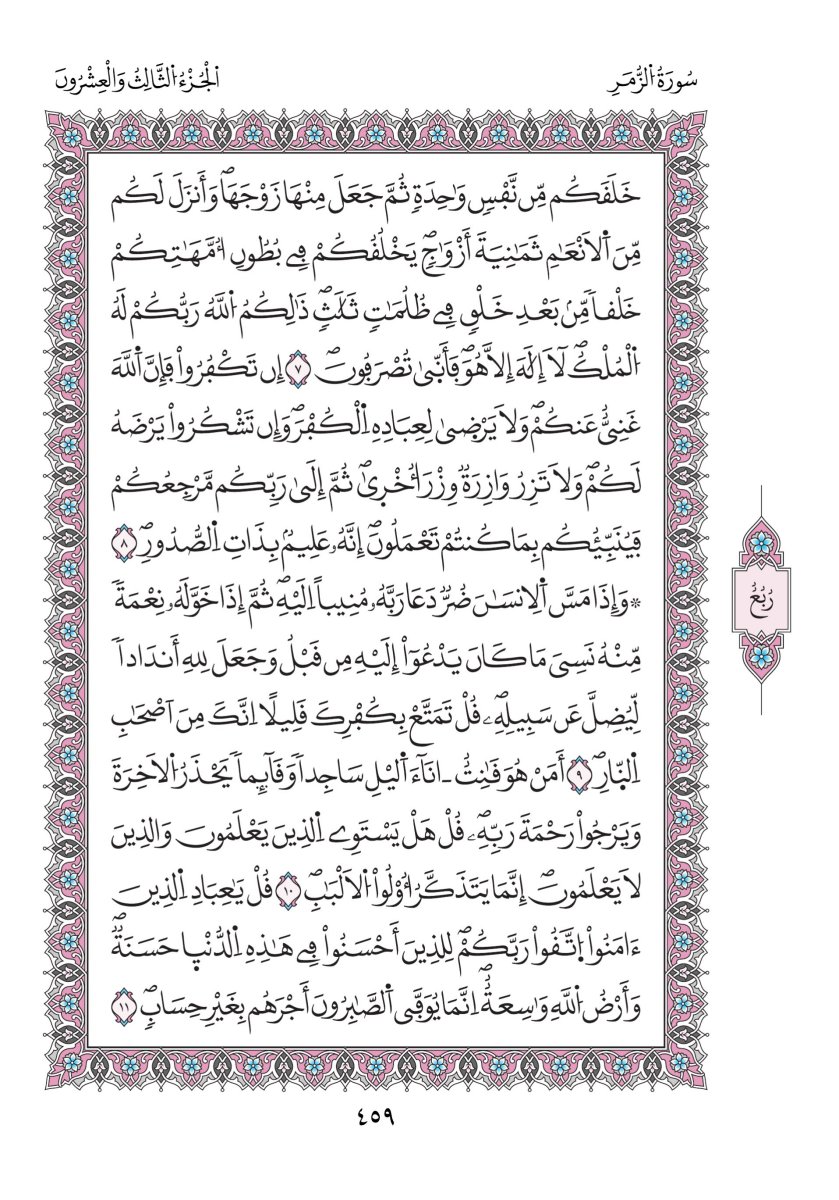 سُورَةُ اُ۬لزُّمَرِ
اَ۬لْجُزْءُ اُ۬لثَّالِثُ وَالْعِشْرُونَ
خَلَقَكُم مِّن نَّفْسٖ وَٰحِدَةٖ ثُمَّ جَعَلَ مِنْهَا زَوْجَهَاۖ وَأَنزَلَ لَكُم
مِّنَ اَ۬لَانْعَٰمِ ثَمَٰنِيَةَ أَزْوَٰجٖۖ يَخْلُقُكُمْ فِے بُطُونِ أُمَّهَٰتِكُمْ
خَلْقاٗ مِّنۢ بَعْدِ خَلْقٖ فِے ظُلُمَٰتٖ ثَلَٰثٖۖ ذَٰلِكُمُ اُ۬للَّهُ رَبُّكُمْ لَهُ
اُ۬لْمُلْكُۖ لَآ إِلَٰهَ إِلَّا هُوَۖ فَأَنّ۪ىٰ تُصْرَفُونَۖ ٧ إِن تَكْفُرُواْ فَإِنَّ اَ۬للَّهَ
غَنِيٌّ عَنكُمْۖ وَلَا يَرْضىٰ لِعِبَادِهِ اِ۬لْكُفْرَۖ وَإِن تَشْكُرُواْ يَرْضَهُ
لَكُمْۖ وَلَا تَزِرُ وَازِرَةٞ وِزْرَ أُخْر۪ىٰۖ ثُمَّ إِلَىٰ رَبِّكُم مَّرْجِعُكُمْ
فَيُنَبِّئُكُم بِمَا كُنتُمْ تَعْمَلُونَۖ إِنَّهُۥ عَلِيمُۢ بِذَاتِ اِ۬لصُّدُورِۖ ٨
۞ وَإِذَا مَسَّ اَ۬لِانسَٰنَ ضُرّٞ دَعَا رَبَّهُۥ مُنِيباً اِلَيْهِۖ ثُمَّ إِذَا خَوَّلَهُۥ نِعْمَةٗ
مِّنْهُ نَسِيَ مَا كَانَ يَدْعُوٓاْ إِلَيْهِ مِن قَبْلُ وَجَعَلَ لِلهِ أَندَاداٗ
لِّيُضِلَّ عَن سَبِيلِهِۦۖ قُلْ تَمَتَّعْ بِكُفْرِكَ قَلِيلًا اِنَّكَ مِنَ اَصْحَٰبِ
اِ۬لنّ۪ارِۖ ٩ أَمَنْ هُوَ قَٰنِتٌ ـ انَآءَ اَ۬ليْلِ سَاجِداٗ وَقَآئِماٗ يَحْذَرُ اُ۬لَاخِرَةَ
وَيَرْجُواْ رَحْمَةَ رَبِّهِۦۖ قُلْ هَلْ يَسْتَوِے اِ۬لذِينَ يَعْلَمُونَ وَالذِينَ
لَا يَعْلَمُونَۖ إِنَّمَا يَتَذَكَّرُ أُوْلُواْ اُ۬لَالْبَٰبِۖ ١٠ قُلْ يَٰعِبَادِ اِ۬لذِينَ
ءَامَنُواْ اُ۪تَّقُواْ رَبَّكُمْۖ لِلذِينَ أَحْسَنُواْ فِے هَٰذِهِ اِ۬لدُّنْي۪ا حَسَنَةٞۖ
وَأَرْضُ اُ۬للَّهِ وَٰسِعَةٌۖ اِنَّمَا يُوَفَّى اَ۬لصَّٰبِرُونَ أَجْرَهُم بِغَيْرِ حِسَابٖۖ ١١
رُبُعُ
٤٥٩